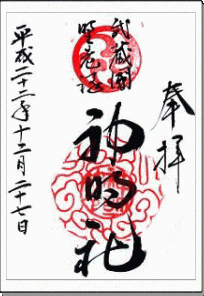 奉拝
武蔵國
野老澤
神明社
平成二十二年十二月二十七日